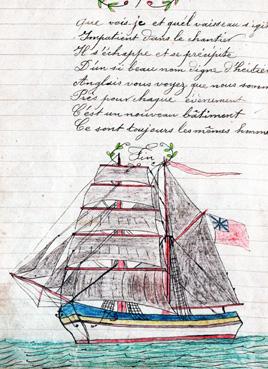 que vois-je et quel vaisseau s'agit
Impatient dans le chantier
Il s'échappe et se précipite
D'un si beau nom digne d'héritier
Anglais vous voyez que nous somm
Près pour chaque évènement
C'est un nouveau bâtiment
Ce sont toujours les mêmes homme
Fin